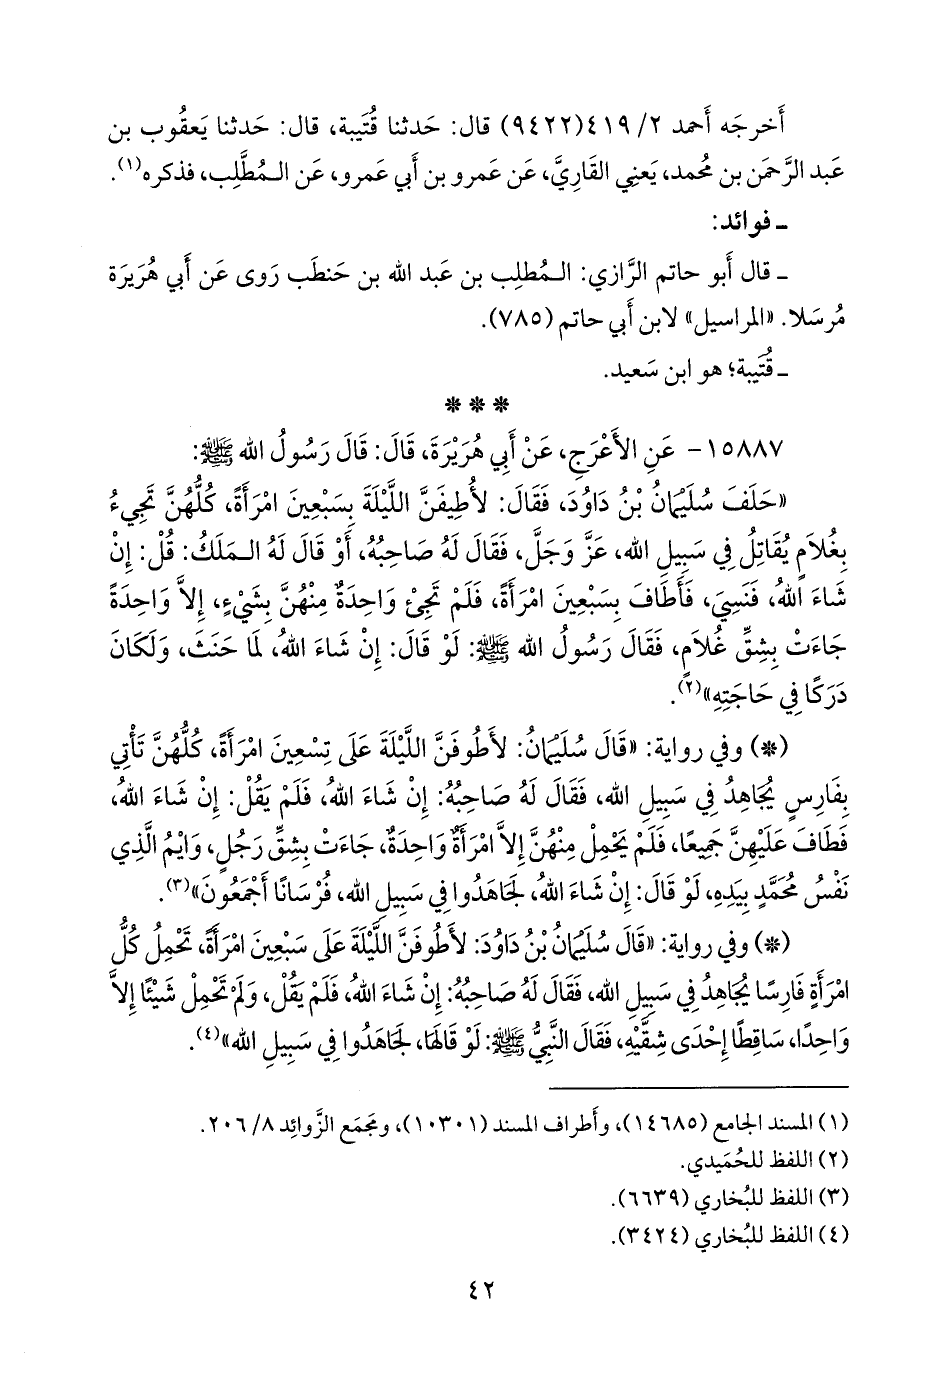 أَخرجَه أَحمد ٢/ ٤١٩(٩٤٢٢) قال: حَدثنا قُتَيبة، قال: حَدثنا يَعقُوب بن
عَبد الرَّحمَن بن مُحمد، يَعنِي القَارِيَّ، عَن عَمرو بن أَبي عَمرو، عَن الـمُطَّلِب، فذكره(١).
ـ فوائد:
ـ قال أَبو حاتم الرَّازي: الـمُطلِب بن عَبد الله بن حَنطَب رَوى عَن أَبي هُرَيرَة
مُرسَلا. «المراسيل» لابن أَبي حاتم (٧٨٥).
ـ قُتَيبة؛ هو ابن سَعيد.
* * *
١٥٨٨٧- عَنِ الأَعْرَجِ، عَنْ أَبِي هُرَيْرَةَ، قَالَ: قَالَ رَسُولُ الله ﷺ:
«حَلَفَ سُلَيْمَانُ بْنُ دَاوُدَ، فَقَالَ: لأُطِيفَنَّ اللَّيْلَةَ بِسَبْعِينَ امْرَأَةً، كُلُّهُنَّ تَجِيءُ
بِغُلاَمٍ يُقَاتِلُ فِي سَبِيلِ الله، عَزَّ وَجَلَّ، فَقَالَ لَهُ صَاحِبُهُ، أَوْ قَالَ لَهُ الـمَلَكُ: قُلْ: إِنْ
شَاءَ اللهُ، فَنَسِيَ، فَأَطَافَ بِسَبْعِينَ امْرَأَةً، فَلَمْ تَجِئْ وَاحِدَةٌ مِنْهُنَّ بِشَيْءٍ، إِلاَّ وَاحِدَةً
جَاءَتْ بِشِقِّ غُلاَمٍ، فَقَالَ رَسُولُ الله ﷺ: لَوْ قَالَ: إِنْ شَاءَ اللهُ، لَمَا حَنَثَ، وَلَكَانَ
دَرَكًا فِي حَاجَتِهِ»(٢).
(*) وفي رواية: «قَالَ سُلَيْمَانُ: لأَطُوفَنَّ اللَّيْلَةَ عَلَى تِسْعِينَ امْرَأَةً، كُلُّهُنَّ تَأْتِي
بِفَارِسٍ يُجَاهِدُ فِي سَبِيلِ الله، فَقَالَ لَهُ صَاحِبُهُ: إِنْ شَاءَ اللهُ، فَلَمْ يَقُلْ: إِنْ شَاءَ اللهُ،
فَطَافَ عَلَيْهِنَّ جَمِيعًا، فَلَمْ يَحْمِلْ مِنْهُنَّ إِلاَّ امْرَأَةٌ وَاحِدَةٌ، جَاءَتْ بِشِقِّ رَجُلٍ، وَايْمُ الَّذِي
نَفْسُ مُحَمَّدٍ بِيَدِهِ، لَوْ قَالَ: إِنْ شَاءَ اللهُ، لَجَاهَدُوا فِي سَبِيلِ الله، فُرْسَانًا أَجْمَعُونَ»(٣).
(*) وفي رواية: «قَالَ سُلَيْمَانُ بْنُ دَاوُدَ: لأَطُوفَنَّ اللَّيْلَةَ عَلَى سَبْعِينَ امْرَأَةً، تَحْمِلُ كُلُّ
امْرَأَةٍ فَارِسًا يُجَاهِدُ فِي سَبِيلِ الله، فَقَالَ لَهُ صَاحِبُهُ: إِنْ شَاءَ اللهُ، فَلَمْ يَقُلْ، وَلَمْ تَحْمِلْ شَيْئًا إِلاَّ
وَاحِدًا، سَاقِطًا إِحْدَى شِقَّيْهِ، فَقَالَ النَّبِيُّ ﷺ: لَوْ قَالَهَا، لَجَاهَدُوا فِي سَبِيلِ الله»(٤).
(١) المسند الجامع (١٤٦٨٥)، وأَطراف المسند (١٠٣٠١)، ومَجمَع الزَّوائِد ٨/ ٢٠٦.
(٢) اللفظ للحُمَيدي.
(٣) اللفظ للبُخاري (٦٦٣٩).
(٤) اللفظ للبُخاري (٣٤٢٤).
٤٢